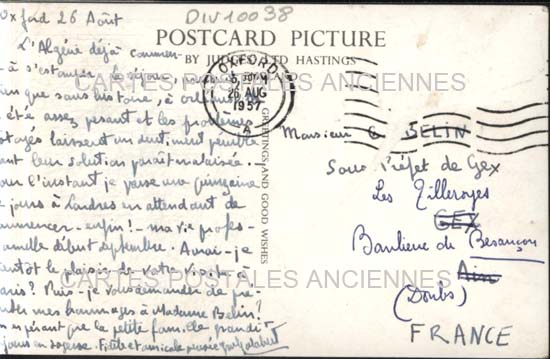 DIV10038
Oxford 26 Août
L'Algérie déjà commen-
-à s'estomper. Le séjour,
que sans histoire, à
été assez pesant et les problèmes
laissent un sentiment pénible
leur solution paraît malaisée.
l'instant je passe une quinzaine
jours à Londres en attendant de
commencer - enfin! - ma vie profes-
début septembre. Aurai-je
bientôt le plaisir de votre visite à
Paris? Puis-je vous demander de pré-
mes hommages à Madame Belin?
en espérant que la petite famille grandit
en sagesse. Fidèle et amicale
POSTCARD PICTURE
BY JUDGES LTD HASTINGS
OXFORD
26 AUG
1957
A
GREETINGS AND GOOD WISHES
Monsieur G BELIN
Sous Préfet de Gex
Les Tilleroyes
GEX
Banlieue de Besançon
Ain
(Doubs)
FRANCE
CARTES POSTALES ANCIENNES
CARTES POSTALES ANCIENNES